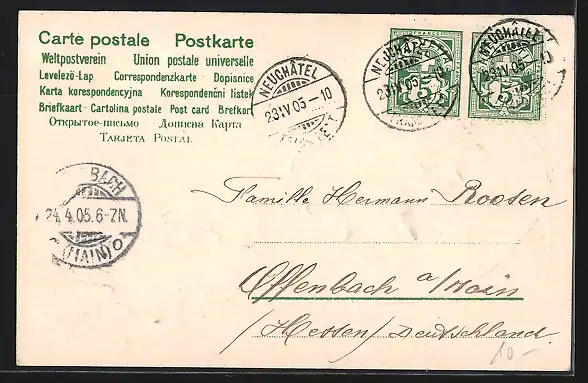 Carte postale Postkarte
Weltpostverein Union postale universelle
Levelező-Lap Correspondenzkarte Dopisnice
Karta korespondencyjna Korespondenční lístek
Briefkaart - Cartolina postale Post card Brefkort
Открытое-письмо Дописна Карта
Tarjeta Postal
NEUCHÂTEL
23.IV 05 – 10
NEUCHÂTEL
23.IV 05 – 10
NEUCHÂTEL
23.IV 05 – 10
FRANCO
5
BACH
24.4.05.6-7N.
(MAIN)
Familie Hermann Roosen
Offenbach a/Main
(Hessen) Deutschland.
10.-